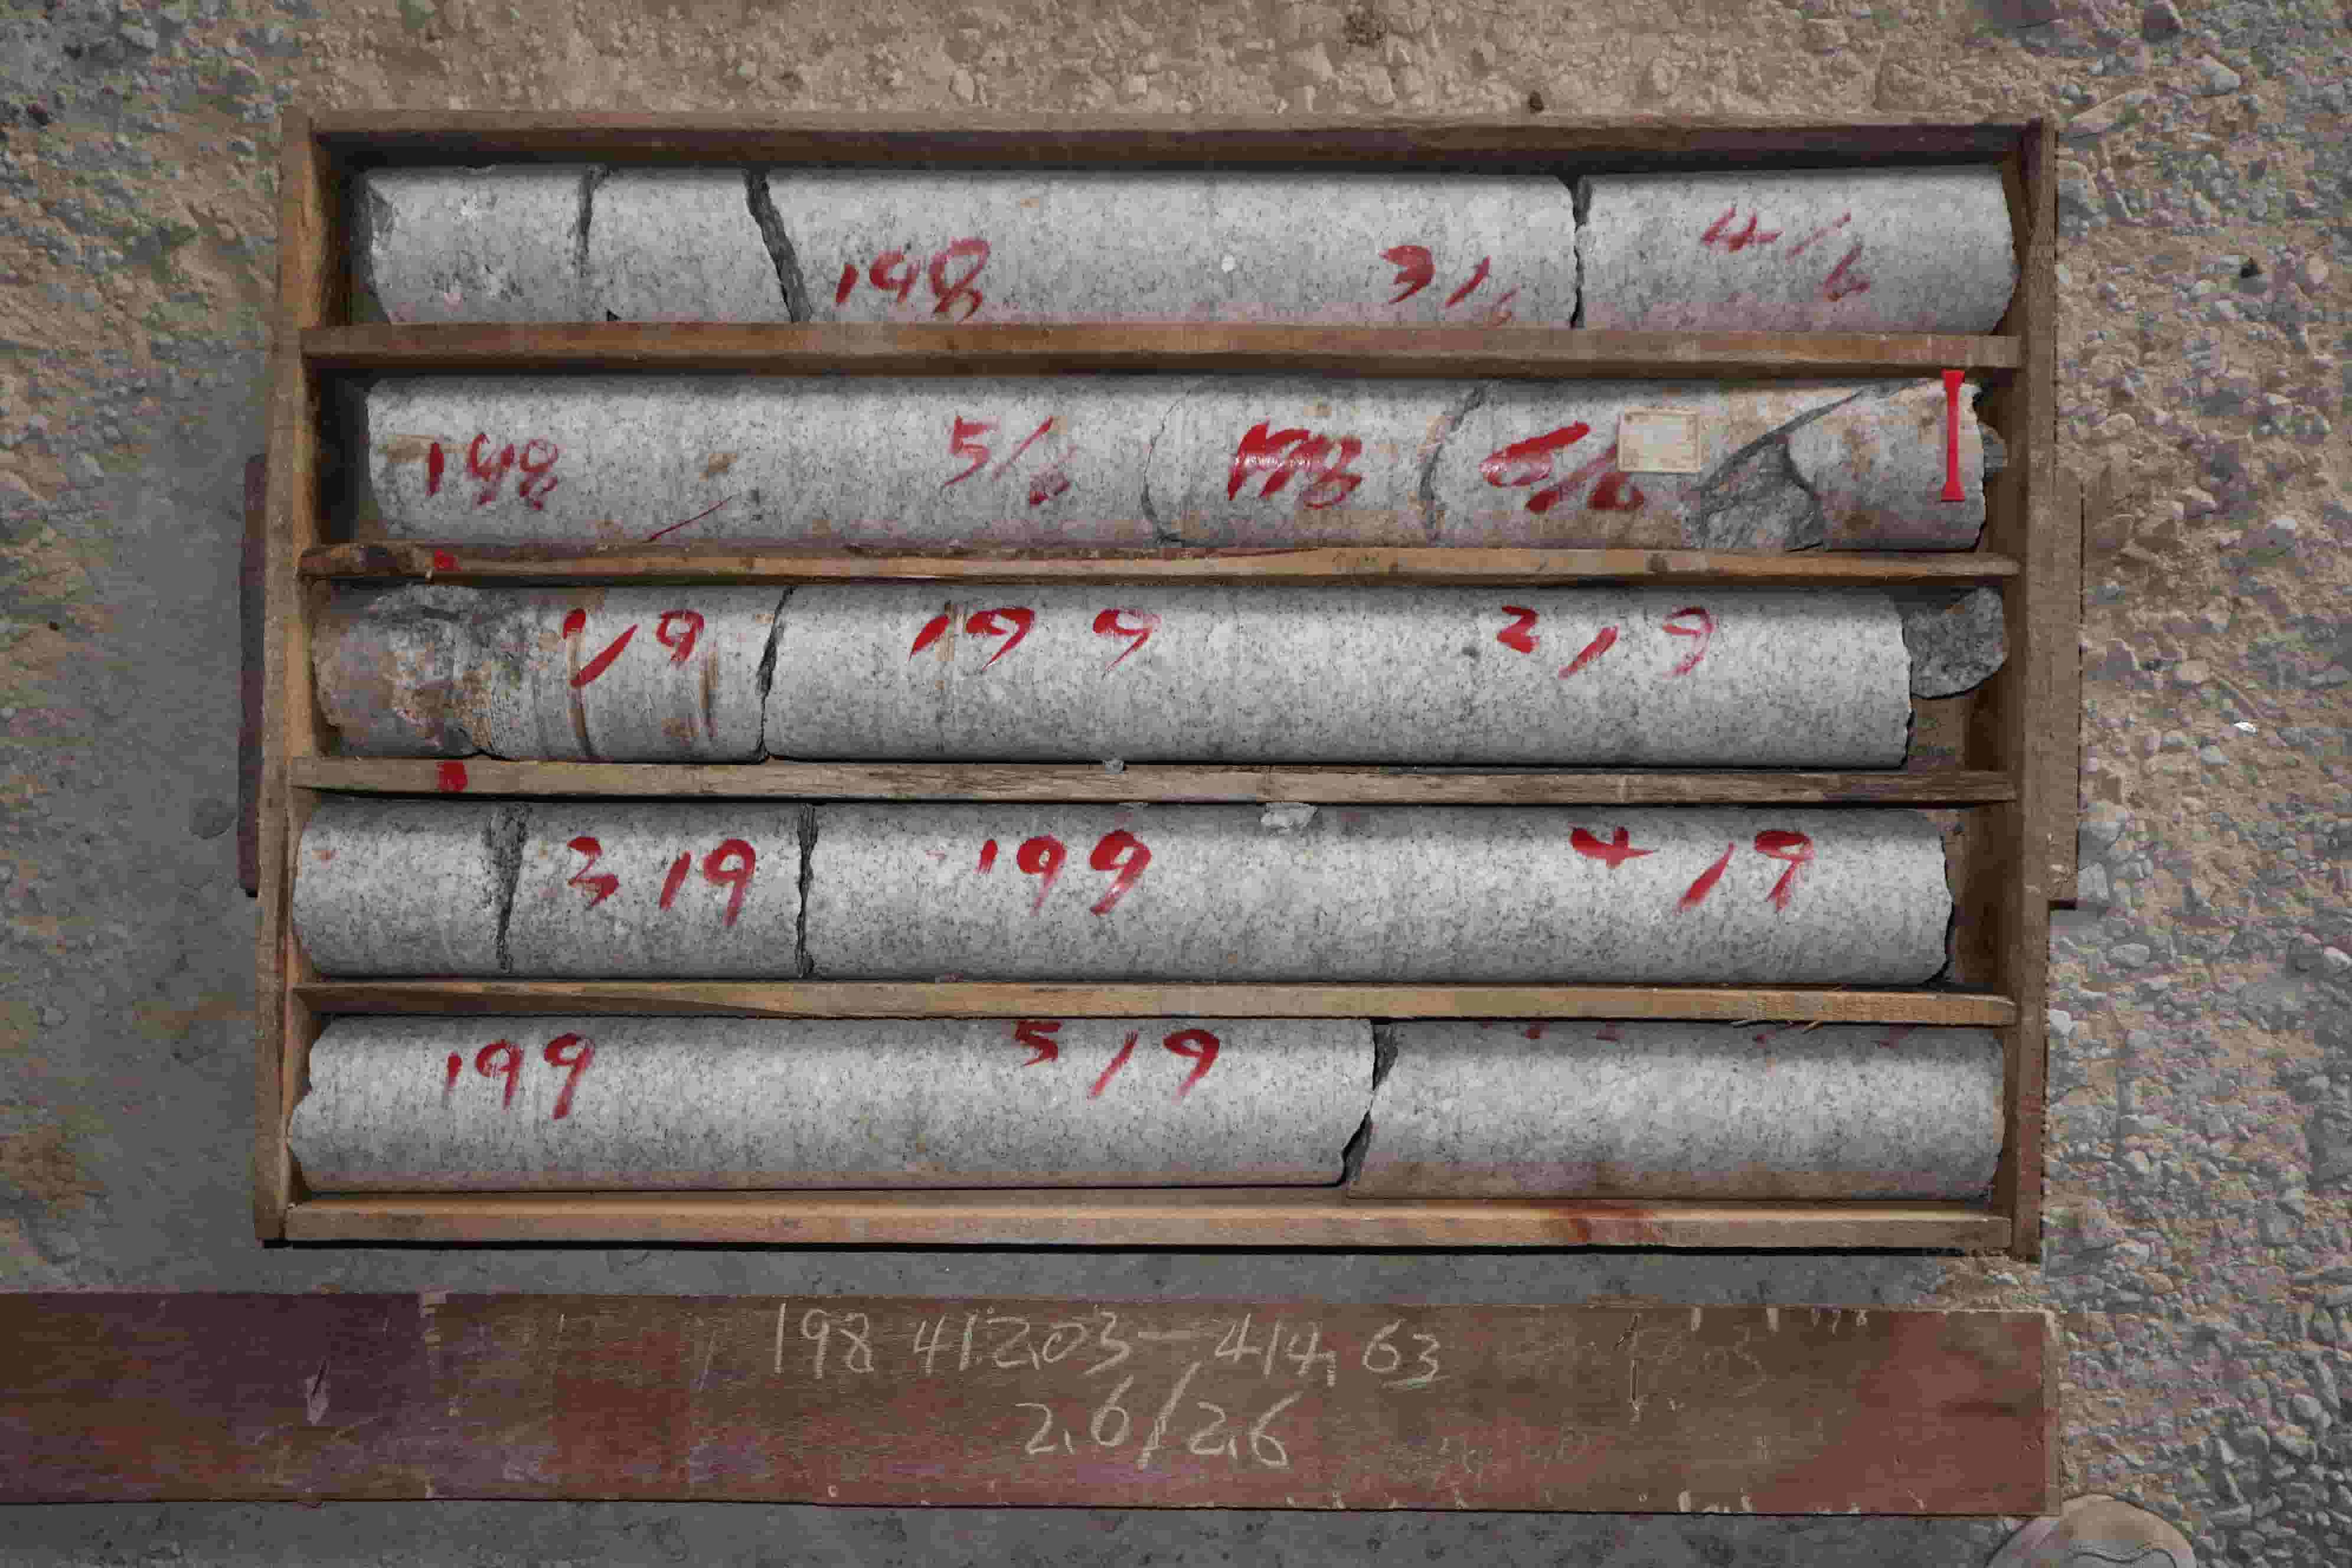 198 3/6 4/6
198 5/6 198 6/6
1/9 199 2/9
3/9 199 4/9
199 5/9
198 412.03—414.63
2.6/2.6